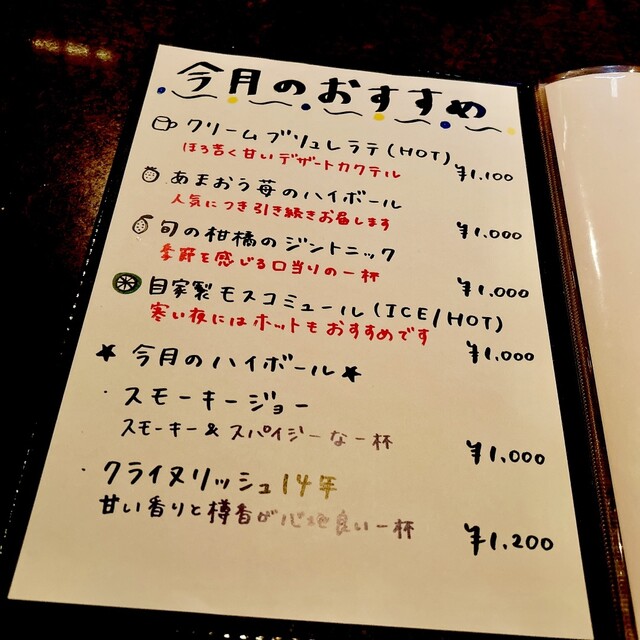 今月のおすすめ
クリームブリュレラテ(HOT)
ほろ苦く甘いデザートカクテル
¥1,100
あまおう苺のハイボール
人気につき引き続きお届します
¥1,000
旬の柑橘のジントニック
季節を感じる口当りの一杯
¥1,000
自家製モスコミュール(ICE/HOT)
寒い夜にはホットもおすすめです
¥1,000
★今月のハイボール★
・スモーキージョー
スモーキー&スパイシーな一杯
¥1,000
・クライヌリッシュ14年
甘い香りと樽香が心地良い一杯
¥1,200